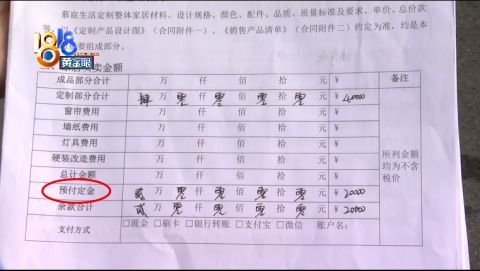 慕宸生活定制整体家居材料、设计规格、颜色、配件、品质、质量标准及要求、单价、总价款
《定制产品设计图》（合同附件一）、《销售产品清单》（合同附件二）约定为准，均是本
要组成部分。
1818
黄金眼
买卖金额
成品部分合计 万 仟 佰 拾 元 ¥ 备注
定制部分合计 肆 万 零 仟 零 佰 零 拾 零 元 ¥ 40000
窗帘费用 万 仟 佰 拾 元 ¥
墙纸费用 万 仟 佰 拾 元 ¥
灯具费用 万 仟 佰 拾 元 ¥
硬装改造费用 万 仟 佰 拾 元 ¥
总计金额 万 仟 佰 拾 元 ¥
所列金额
均为不含
税价
预付定金 贰 万 零 仟 零 佰 零 拾 零 元 ¥ 20000
余款合计 贰 万 零 仟 零 佰 零 拾 零 元 ¥ 20000
支付方式 □现金 □刷卡 □银行转账 □支付宝 □微信 账户名：